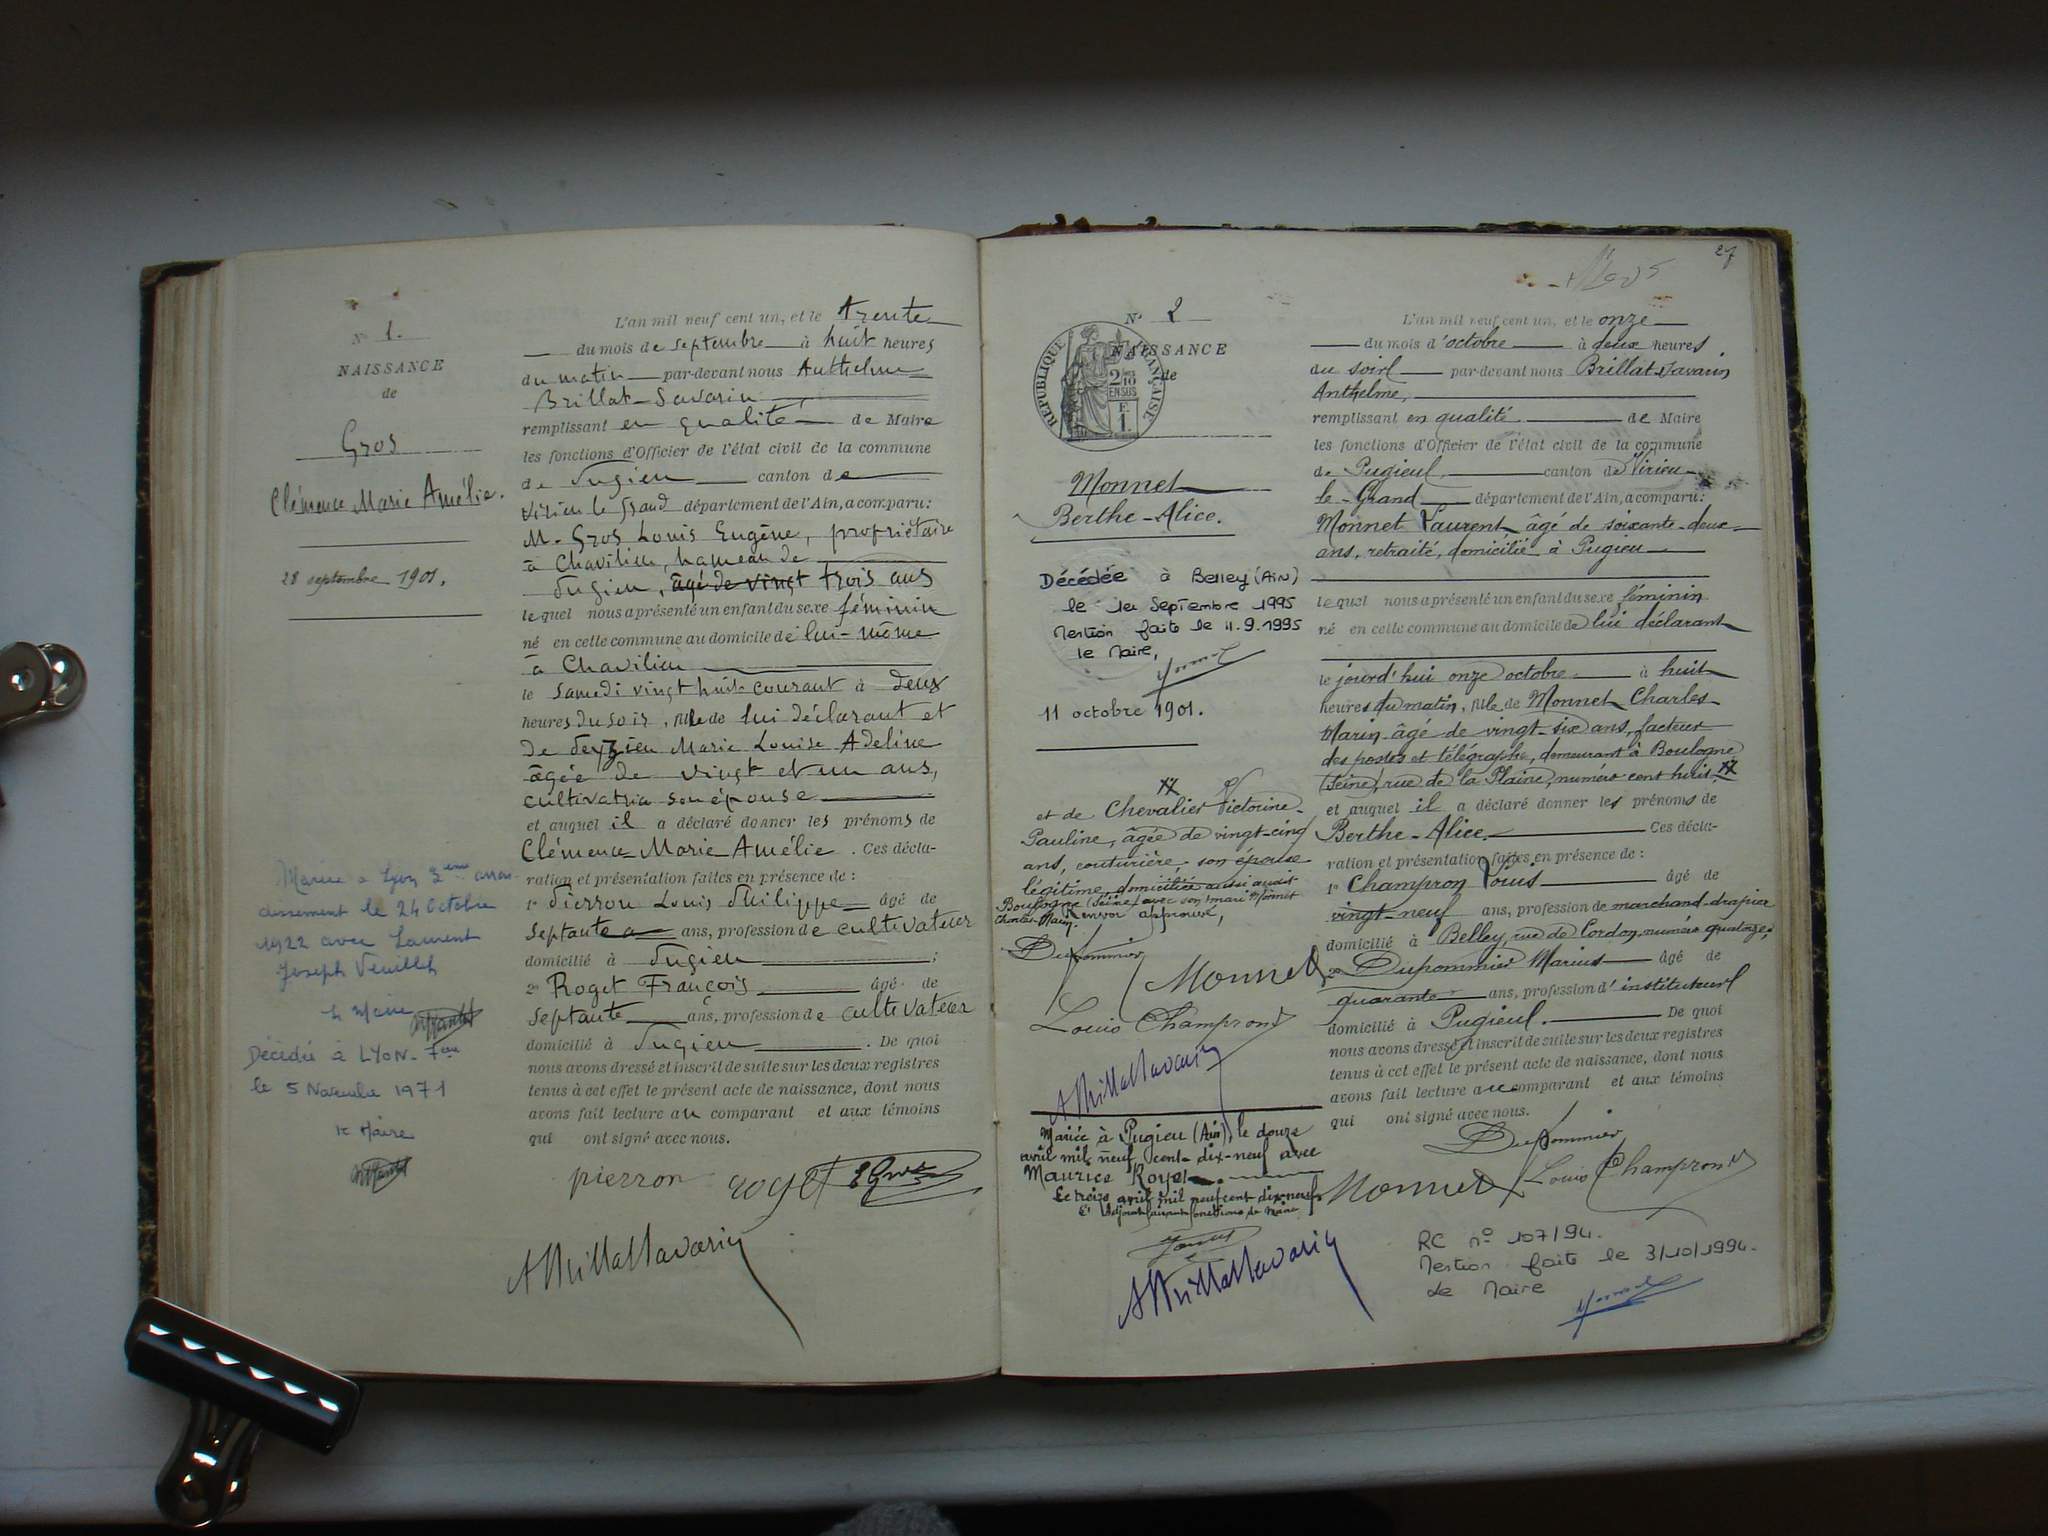 N° 1.
NAISSANCE
de
Gros
Clémence Marie Amélie.
28 septembre 1901.
Mariée à Lyon 3ème arron-
dissement le 24 Octobre
1922 avec Laurent
Joseph Veuillet
Le Maire
Décédée à LYON-7eme
le 5 Novembre 1971
Le Maire
L'an mil neuf cent un, et le trente
du mois de septembre à huit heures
du matin par-devant nous Anthelme
Brillat-Savarin
remplissant en qualité de Maire
les fonctions d'Officier de l'état civil de la commune
de Pugieu canton de
Virieu le Grand département de l'Ain, a comparu:
M. Gros Louis Eugène, propriétaire
à Chavilieu, hameau de
Pugieu, âgé de vingt trois ans
lequel nous a présenté un enfant du sexe féminin
né en cette commune au domicile de lui-même
à Chavilieu
le samedi vingt huit courant à deux
heures du soir, fille de lui déclarant et
de Peyzieu Marie Louise Adeline
âgée de vingt et un ans,
cultivatrice son épouse
et auquel il a déclaré donner les prénoms de
Clémence Marie Amélie. Ces décla-
ration et présentation faites en présence de :
1° Pierron Louis Philippe âgé de
septante ans, profession de cultivateur
domicilié à Pugieu ;
2° Roget François âgé de
septante ans, profession de cultivateur
domicilié à Pugieu. De quoi
nous avons dressé et inscrit de suite sur les deux registres
tenus à cet effet le présent acte de naissance, dont nous
avons fait lecture au comparant et aux témoins
qui ont signé avec nous.
pierron roget E Gros
A Brillat Savarin
27
N° 2
NAISSANCE
de
RÉPUBLIQUE FRANÇAISE
2/10
EN SUS
F.
1.
Monnet
Berthe-Alice.
Décédée à Belley (Ain)
le 1er Septembre 1995
Mention faite le 11.9.1995
le Maire,
11 octobre 1901.
et de Chevalier Victorine-
Pauline, âgée de vingt-cinq
ans, couturière, son épouse
légitime, domiciliée aussi
Boulogne (Seine) avec son mari Monnet
Charles-Marin.
Renvoi approuvé,
Dupommier
Monnet
Louis Champrond
A Brillat Savarin
Mariée à Pugieu (Ain), le douze
avril mil neuf cent dix-neuf avec
Maurice Royet
Le treize avril mil neuf cent dix-neuf
L'Adjoint faisant fonctions de Maire
A Brillat Savarin
L'an mil neuf cent un, et le onze
du mois d'octobre à deux heures
du soir par-devant nous Brillat-Savarin
Anthelme,
remplissant en qualité de Maire
les fonctions d'Officier de l'état civil de la commune
de Pugieu canton de Virieu-
le-Grand département de l'Ain, a comparu:
Monnet Laurent âgé de soixante-deux
ans, retraité, domicilié à Pugieu
lequel nous a présenté un enfant du sexe féminin
né en cette commune au domicile de lui déclarant
le jourd'hui onze octobre à huit
heures du matin, fille de Monnet Charles-
Marin âgé de vingt-six ans, facteur
des postes et télégraphe, demeurant à Boulogne
(Seine), rue de la Plaine, numéro cent huit
et auquel il a déclaré donner les prénoms de
Berthe-Alice. Ces décla-
ration et présentation faites en présence de :
1° Champron Louis âgé de
vingt-neuf ans, profession de marchand-drapier
domicilié à Belley, rue de Cordon, numéro quatorze;
2° Dupommier Marius âgé de
quarante ans, profession d'instituteur
domicilié à Pugieu. De quoi
nous avons dressé et inscrit de suite sur les deux registres
tenus à cet effet le présent acte de naissance, dont nous
avons fait lecture au comparant et aux témoins
qui ont signé avec nous.
Dupommier
Monnet Louis Champrond
RC n° 107/94.
Mention faite le 3/10/1994.
Le Maire